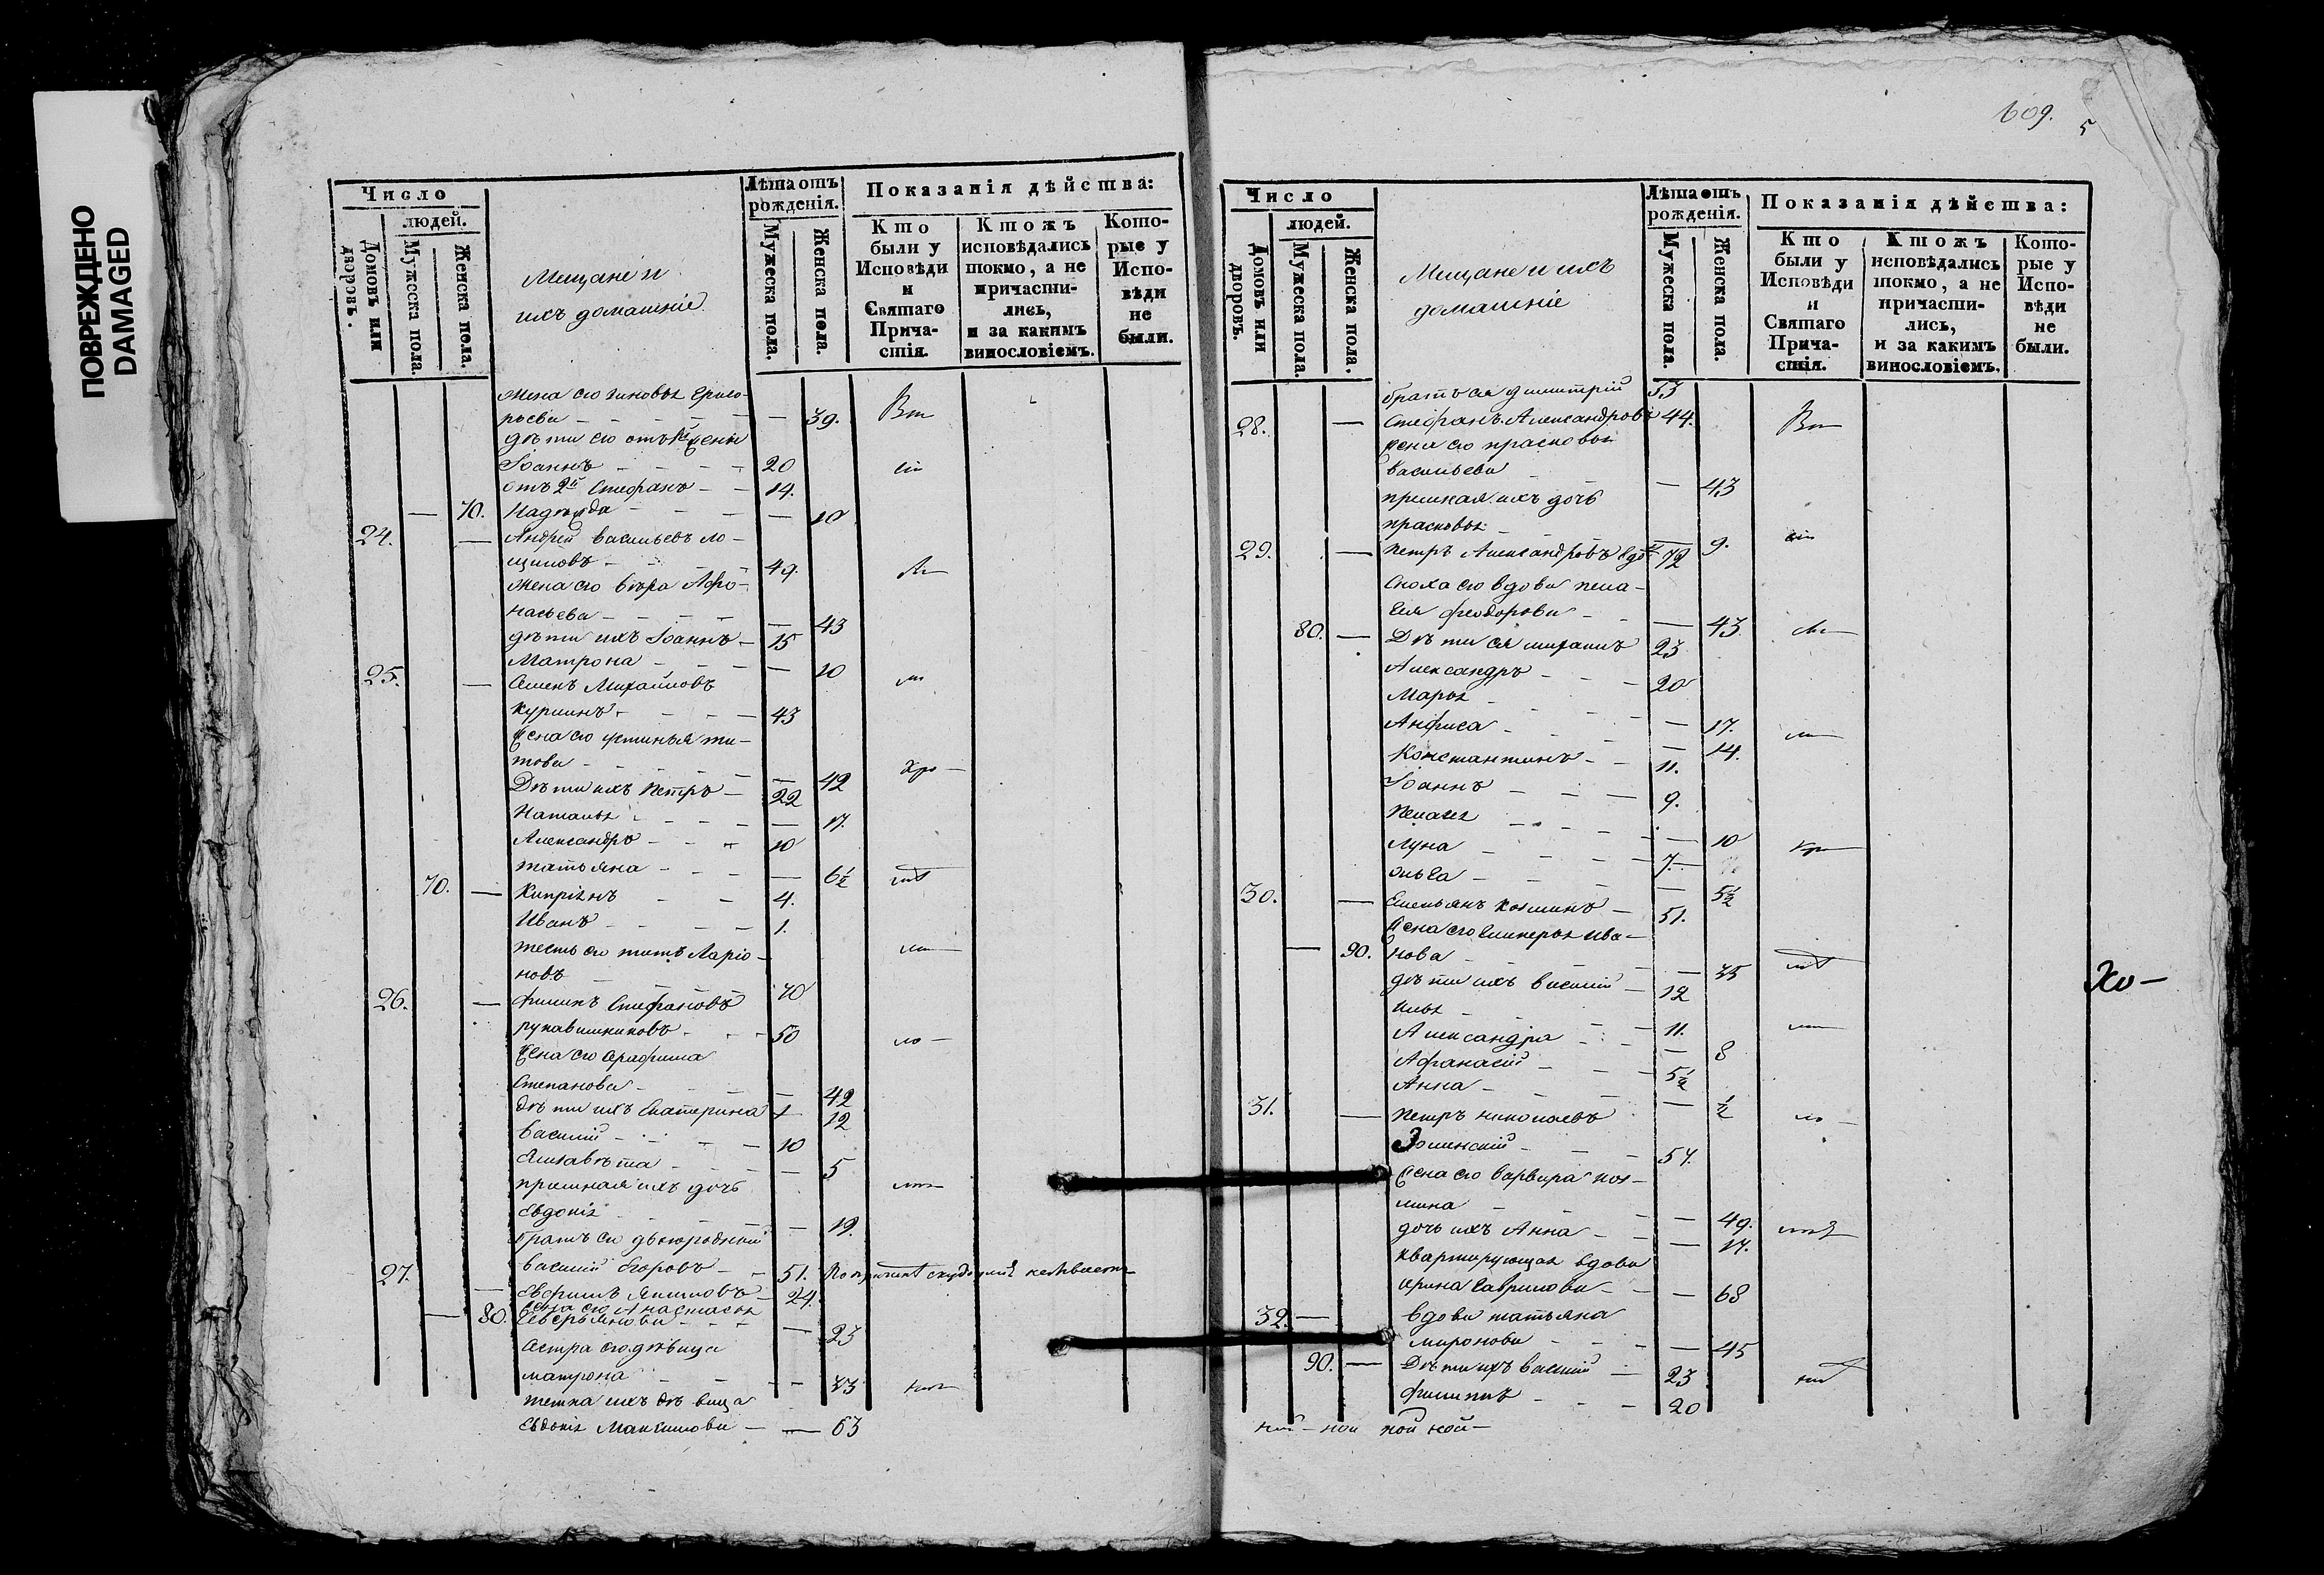 ПОВРЕЖДЕНО
DAMAGED
Число
людей.
Домовъ или дворовъ.
Мужеска пола.
Женска пола.
Мещане и
ихъ домашніе.
Лѣта отъ рожденія.
Мужеска пола.
Женска пола.
Показанія дѣйства:
Кто были у Исповѣди и Святаго Причастія.
Ктожъ исповѣдались токмо, а не причастились, и за какимъ винословіемъ.
Которые у Исповѣди не были.
Жена его Зиновья Григо-
рьева — 39.
дѣти его отъ жены
Іоаннъ 20
отъ 2й Стефанъ 14.
— 70. Надежда — 10
24. — Андрей Васильевъ
49.
Жена его Вѣра Афо-
насьева — 43
дѣти ихъ Іоаннъ 15
Матрона — 10
25. — Семенъ Михайловъ
43
Жена его Устинья Ти-
това — 42
Дѣти ихъ Петръ 22
Наталья — 17.
Александръ 10
Татьяна — 6½
70. — Кипріянъ 4.
Иванъ 1.
тесть его Титъ Ларіо-
новъ 70
26. — Филипъ Стефановъ
Рукавишниковъ 50
Жена его Серафима
Степанова — 42
дѣти ихъ Екатерина 12
Василій 10
Елизавѣта — 5
пріемная ихъ дочь
Евдокія — 19.
Братъ его двоюродный
Василій Егоровъ 51.
27. — Ефимъ 24.
— 80. Жена его Анастасья
Северьянова — 23
Сестра его дѣвица
Матрона — 33
тетка ихъ дѣвица
Евдокія Максимова — 63
609.
5
Число
людей.
Домовъ или дворовъ.
Мужеска пола.
Женска пола.
Мещане и ихъ
домашніе
Лѣта отъ рожденія.
Мужеска пола.
Женска пола.
Показанія дѣйства:
Кто были у Исповѣди и Святаго Причастія.
Ктожъ исповѣдались токмо, а не причастились, и за какимъ винословіемъ.
Которые у Исповѣди не были.
братъ ея Димитрій 53
28. — Стефанъ Александровъ 44.
Жена его Прасковья
Васильева — 43
пріемная ихъ дочь
Прасковья — 9.
29. — Петръ Александровъ вдовъ 72
Сноха его вдова Пела-
гея Феодорова — 43.
80. — Дѣти ея Михаилъ 23
Александръ 20
Марья — 17.
Анфиса — 14.
Константинъ 11.
Іоаннъ 9.
Пелагея — 10
7.
Ольга — 5½
30. — Емельянъ Козминъ 51.
Жена его Гликерья Ива-
— 90. нова — 35
дѣти ихъ Василій 12
Илья 11.
Александра — 8
Афанасій 5½
Анна — ½
31. — Петръ Николаевъ
57.
Жена его Варвара Коз-
мина — 49.
дочь ихъ Анна — 17.
Квартирующая вдова
Ирина Гаврилова — 68
32. — Вдова Татьяна
Миронова — 45
90. — Дѣти ихъ Василій 23
Филиппъ 20